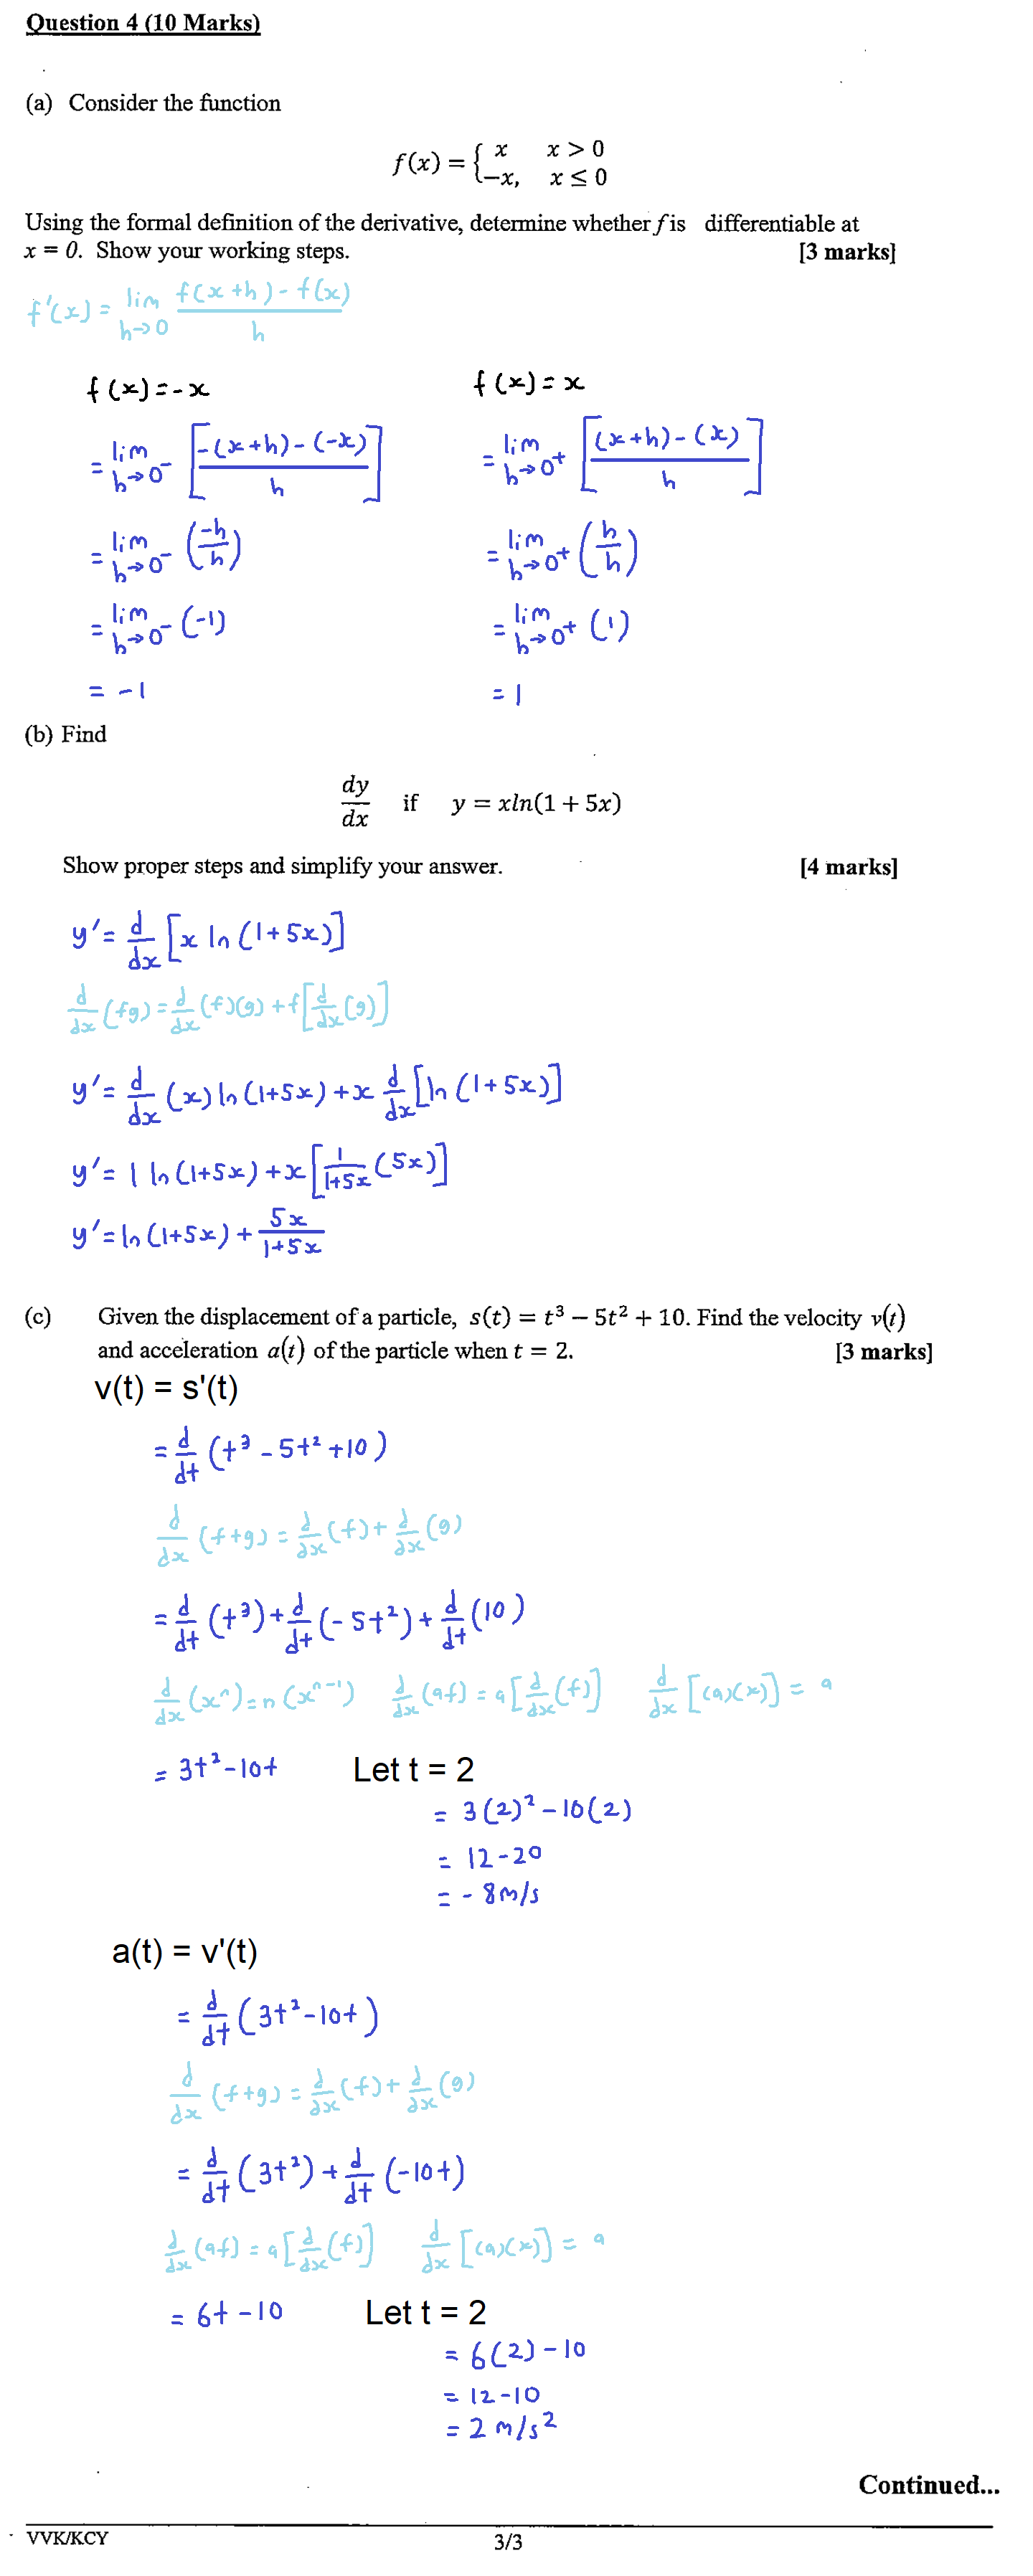 Question 4 (10 Marks)
(a) Consider the function
f(x) = { x x > 0
−x, x ≤ 0
Using the formal definition of the derivative, determine whether f is differentiable at
x = 0. Show your working steps. [3 marks]
f'(x) = lim h→0 (f(x+h) - f(x))/h
f(x) = -x f(x) = x
= lim h→0⁻ [(-(x+h) - (-x))/h] = lim h→0⁺ [((x+h) - (x))/h]
= lim h→0⁻ (-h/h) = lim h→0⁺ (h/h)
= lim h→0⁻ (-1) = lim h→0⁺ (1)
= -1 = 1
(b) Find
dy/dx if y = xln(1 + 5x)
Show proper steps and simplify your answer. [4 marks]
y' = d/dx [x ln (1+5x)]
d/dx (fg) = d/dx (f)(g) + f[d/dx (g)]
y' = d/dx (x) ln (1+5x) + x d/dx [ln (1+5x)]
y' = 1 ln (1+5x) + x [1/(1+5x) (5x)]
y' = ln (1+5x) + 5x/(1+5x)
(c) Given the displacement of a particle, s(t) = t³ − 5t² + 10. Find the velocity v(t)
and acceleration a(t) of the particle when t = 2. [3 marks]
v(t) = s'(t)
= d/dt (t³ - 5t² + 10)
d/dx (f+g) = d/dx (f) + d/dx (g)
= d/dt (t³) + d/dt (-5t²) + d/dt (10)
d/dx (xⁿ) = n(xⁿ⁻¹) d/dx (af) = a[d/dx (f)] d/dx [(a)(x)] = a
= 3t² - 10t Let t = 2
= 3(2)² - 10(2)
= 12 - 20
= - 8m/s
a(t) = v'(t)
= d/dt (3t² - 10t)
d/dx (f+g) = d/dx (f) + d/dx (g)
= d/dt (3t²) + d/dt (-10t)
d/dx (af) = a[d/dx (f)] d/dx [(a)(x)] = a
= 6t - 10 Let t = 2
= 6(2) - 10
= 12 - 10
= 2 m/s²
Continued...
VVK/KCY 3/3